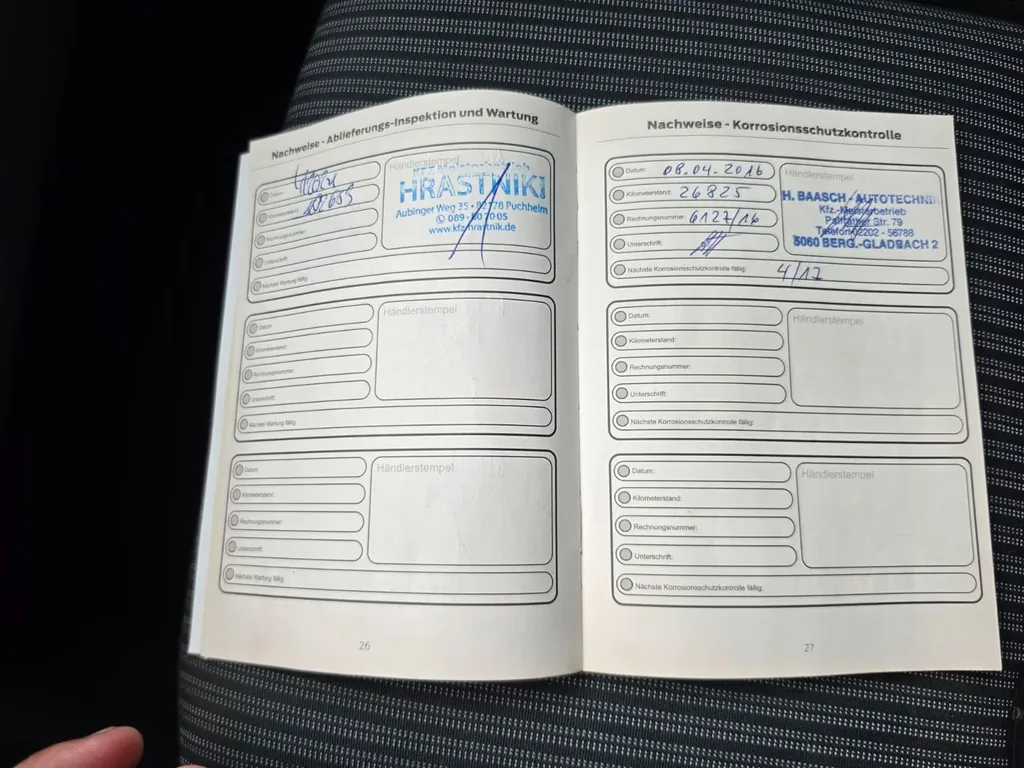 Nachweise - Ablieferungs-Inspektion und Wartung
Datum:
Kilometerstand:
Rechnungsnummer:
Unterschrift:
Nächste Wartung fällig:
Händlerstempel
HRASTNIK
Aubinger Weg 35 • 82178 Puchheim
089 - 80 70 05
www.kfz-hrastnik.de
Datum:
Kilometerstand:
Rechnungsnummer:
Unterschrift:
Nächste Wartung fällig:
Händlerstempel
Datum:
Kilometerstand:
Rechnungsnummer:
Unterschrift:
Nächste Wartung fällig:
Händlerstempel
26
Nachweise - Korrosionsschutzkontrolle
Datum: 08.04.2016
Kilometerstand: 26825
Rechnungsnummer: 6127/16
Unterschrift:
Nächste Korrosionsschutzkontrolle fällig: 4/17
Händlerstempel
H. BAASCH - AUTOTECHNIK
Kfz.-Meisterbetrieb
Str. 79
Telefon 02202 - 56788
5060 BERG.-GLADBACH 2
Datum:
Kilometerstand:
Rechnungsnummer:
Unterschrift:
Nächste Korrosionsschutzkontrolle fällig:
Händlerstempel
Datum:
Kilometerstand:
Rechnungsnummer:
Unterschrift:
Nächste Korrosionsschutzkontrolle fällig:
Händlerstempel
27